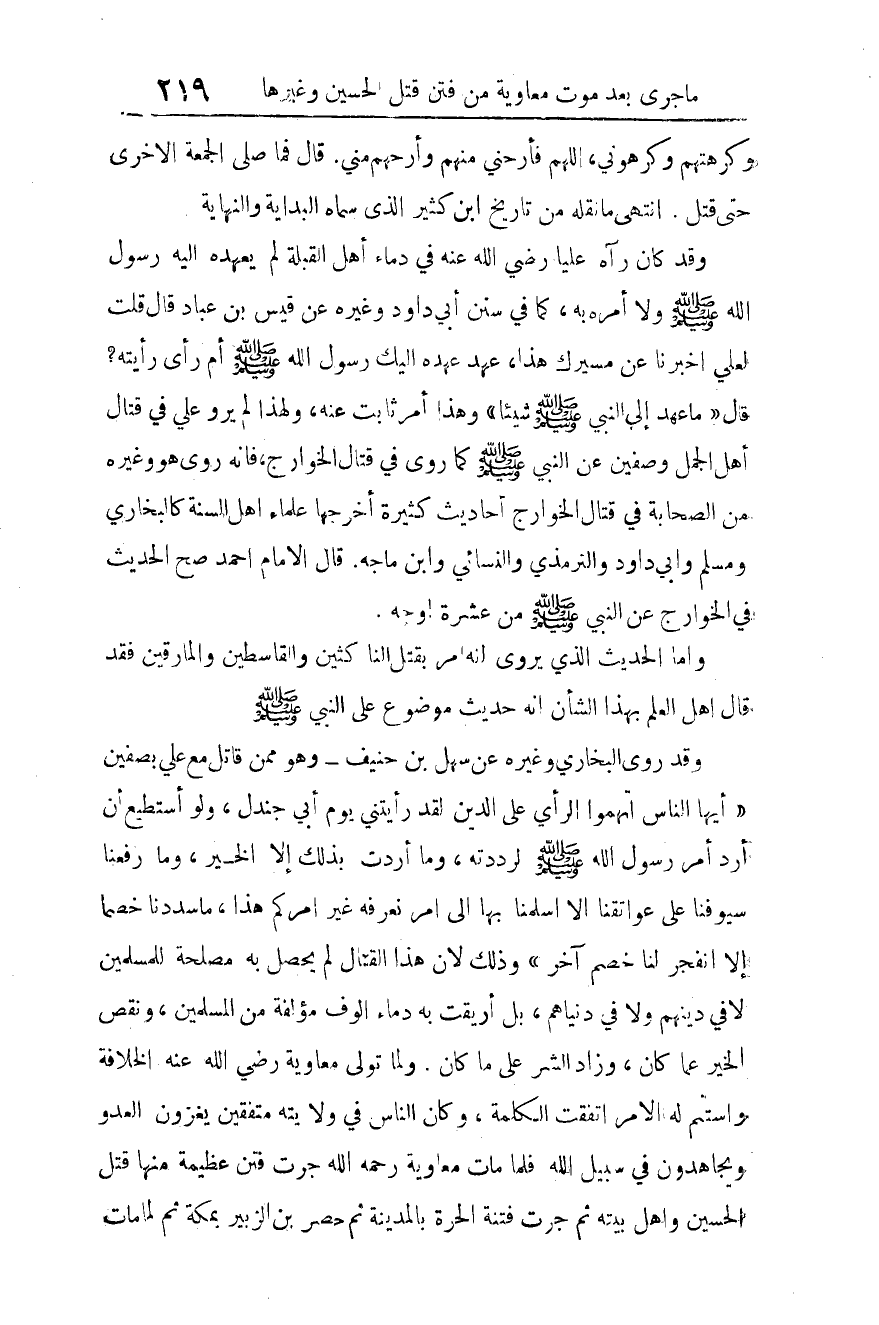 ماجرى بعد موت معاوية من فتن قتل الحسين وغيرها ٢١٩
وكرهتهم وكرهوني، اللهم فأرحني منهم وأرحهم مني. قال فما صلى الجمعة الاخرى
حتى قتل . انتهى مانقله من تاريخ ابن كثير الذى سماه البداية والنهاية
وقد كان رآه عليا رضي الله عنه في دماء أهل القبلة لم يعهده اليه رسول
الله ﷺ ولا أمره به، كما في سنن أبي داود وغيره عن قيس بن عباد قال قلت
لعلي اخبرنا عن مسيرك هذا، عهد عهده اليك رسول الله ﷺ أم رأى رأيته؟
قال « ماعهد إلي النبي ﷺ شيئا» وهذا أمر ثابت عنه، ولهذا لم يرو علي في قتال
أهل الجمل وصفين عن النبي ﷺ كما روى في قتال الخوارج، فانه روى هو وغيره
من الصحابة في قتال الخوارج أحاديث كثيرة أخرجها علماء اهل السنة كالبخاري
ومسلم وابي داود والترمذي والنسائي وابن ماجه. قال الامام احمد صح الحديث
في الخوارج عن النبي ﷺ من عشرة اوجه .
واما الحديث الذي يروى انه امر بقتل الناكثين والقاسطين والمارقين فقد
قال اهل العلم بهذا الشأن انه حديث موضوع على النبي ﷺ
وقد روى البخاري وغيره عن سهل بن حنيف ــ وهو ممن قاتل مع علي بصفين
« أيها الناس اتهموا الرأي على الدين لقد رأيتني يوم أبي جندل ، ولو أستطيع أن
أرد أمر رسول الله ﷺ لرددته ، وما أردت بذلك إلا الخير ، وما رفعنا
سيوفنا على عواتقنا الا اسلمنا بها الى امر نعرفه غير امركم هذا ، ماسددنا خصما
إلا انفجر لنا خصم آخر » وذلك لان هذا القتال لم يحصل به مصلحة للمسلمين
لافي دينهم ولا في دنياهم ، بل أريقت به دماء الوف مؤلفة من المسلمين ، ونقص
الخير عما كان ، وزاد الشر على ما كان . ولما تولى معاوية رضي الله عنه الخلافة
واستتم له الامر اتفقت الكلمة ، وكان الناس في ولايته متفقين يغزون العدو
ويجاهدون في سبيل الله فلما مات معاوية رحمه الله جرت فتن عظيمة منها قتل
الحسين واهل بيته ثم جرت فتنة الحرة بالمدينة ثم حصر بن الزبير بمكة ثم لما مات